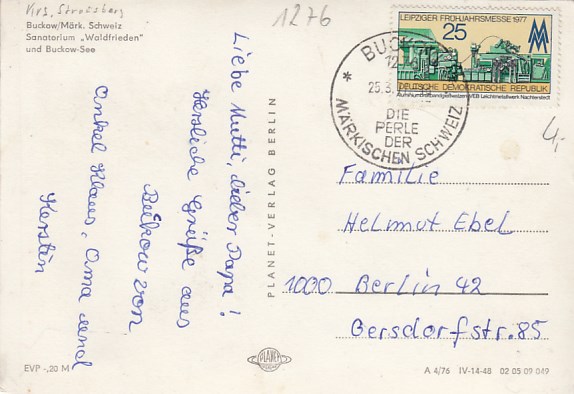 Krs. Strausberg
Buckow/Märk. Schweiz
Sanatorium „Waldfrieden"
und Buckow-See
1276
Liebe Mutti, lieber Papa!
Herzliche Grüße aus
Buckow von
Onkel Klaus, Oma und
Kerstin
PLANET-VERLAG BERLIN
LEIPZIGER FRÜHJAHRSMESSE 1977
25
MM
DEUTSCHE DEMOKRATISCHE REPUBLIK
VEB Leichtmetallwerk Nachterstedt
BUCKOW
25.3.
DIE
PERLE
DER
MÄRKISCHEN SCHWEIZ
4,-
Familie
Helmut Ebel
1000 Berlin 42
Gersdorfstr. 85
EVP -,20 M
PLANET
A 4/76 IV-14-48 02 05 09 049